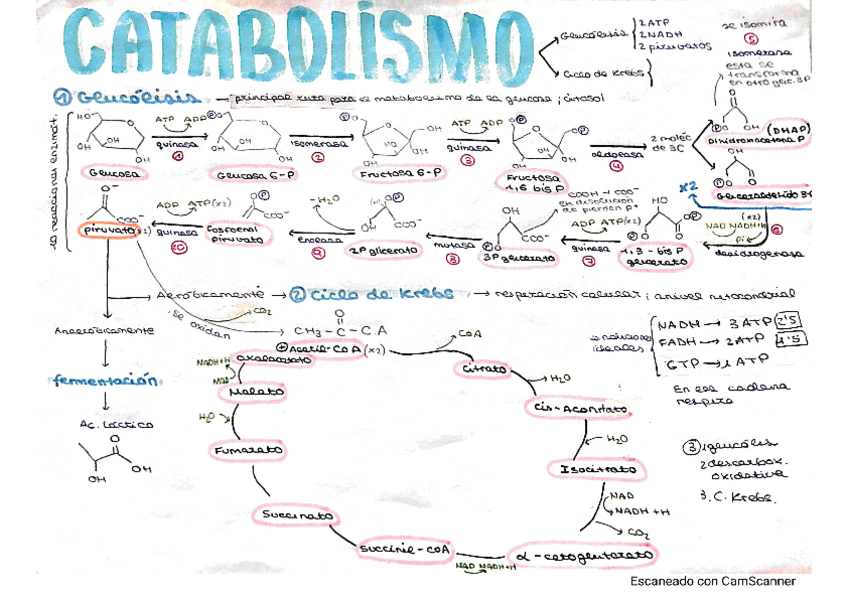 CATABOLISMO
Glucólisis { 2 ATP
2 NADH
2 piruvatos
Ciclo de Krebs {
se isomira
⑤
isomerasa
esta se
transforma
en otro glic.3P
① Glucólisis → principal ruta para el metabolismo de la glucosa ; citosol
10 reacciones enzimát.
HO OH OH OH
Glucosa
ATP ADP
quinasa
①
Glucosa 6-P
isomerasa
②
Fructosa 6-P
ATP ADP
quinasa
③
Fructosa
1,6 bis P
aldolasa
④
2 moléc
de 3C
(DHAP)
Dihidroxiacetona P
Gliceraldehído 3P
x2
(x2)
NAD NADH+H
Pi
⑥
deshidrogenasa
1,3-bis P
glicerato
ADP ATP(x2)
quinasa
⑦
COOH → COO⁻
en disolución
se pierden
3P glicerato
mutasa
⑧
2P glicerato
-H₂O
enolasa
⑨
fosfoenol
piruvato
ADP ATP(x2)
quinasa
⑩
piruvato(x2)
Aeróbicamente → ② Ciclo de Krebs → respiración celular ; a nivel mitocondrial
se oxidan
CO₂
O
CH₃ - C - C.A
Anaeróbicamente
fermentación
Ac. láctico
O
OH
OH
+ Acetil-CoA (x2)
CoA
oxalacetato
Citrato
H₂O
Cis-Aconitato
H₂O
Isocitrato
NAD
NADH + H
CO₂
α-cetoglutarato
NAD NADH+H
Succinil-CoA
Succinato
Fumarato
H₂O
Malato
NAD
NADH+H
condiciones
ideales
NADH → 3 ATP 2'5
FADH → 2 ATP 1'5
GTP → 1 ATP
En la cadena
respira
③ 1 glucólis
2 descarbox.
oxidativa
3. C. Krebs.
Escaneado con CamScanner